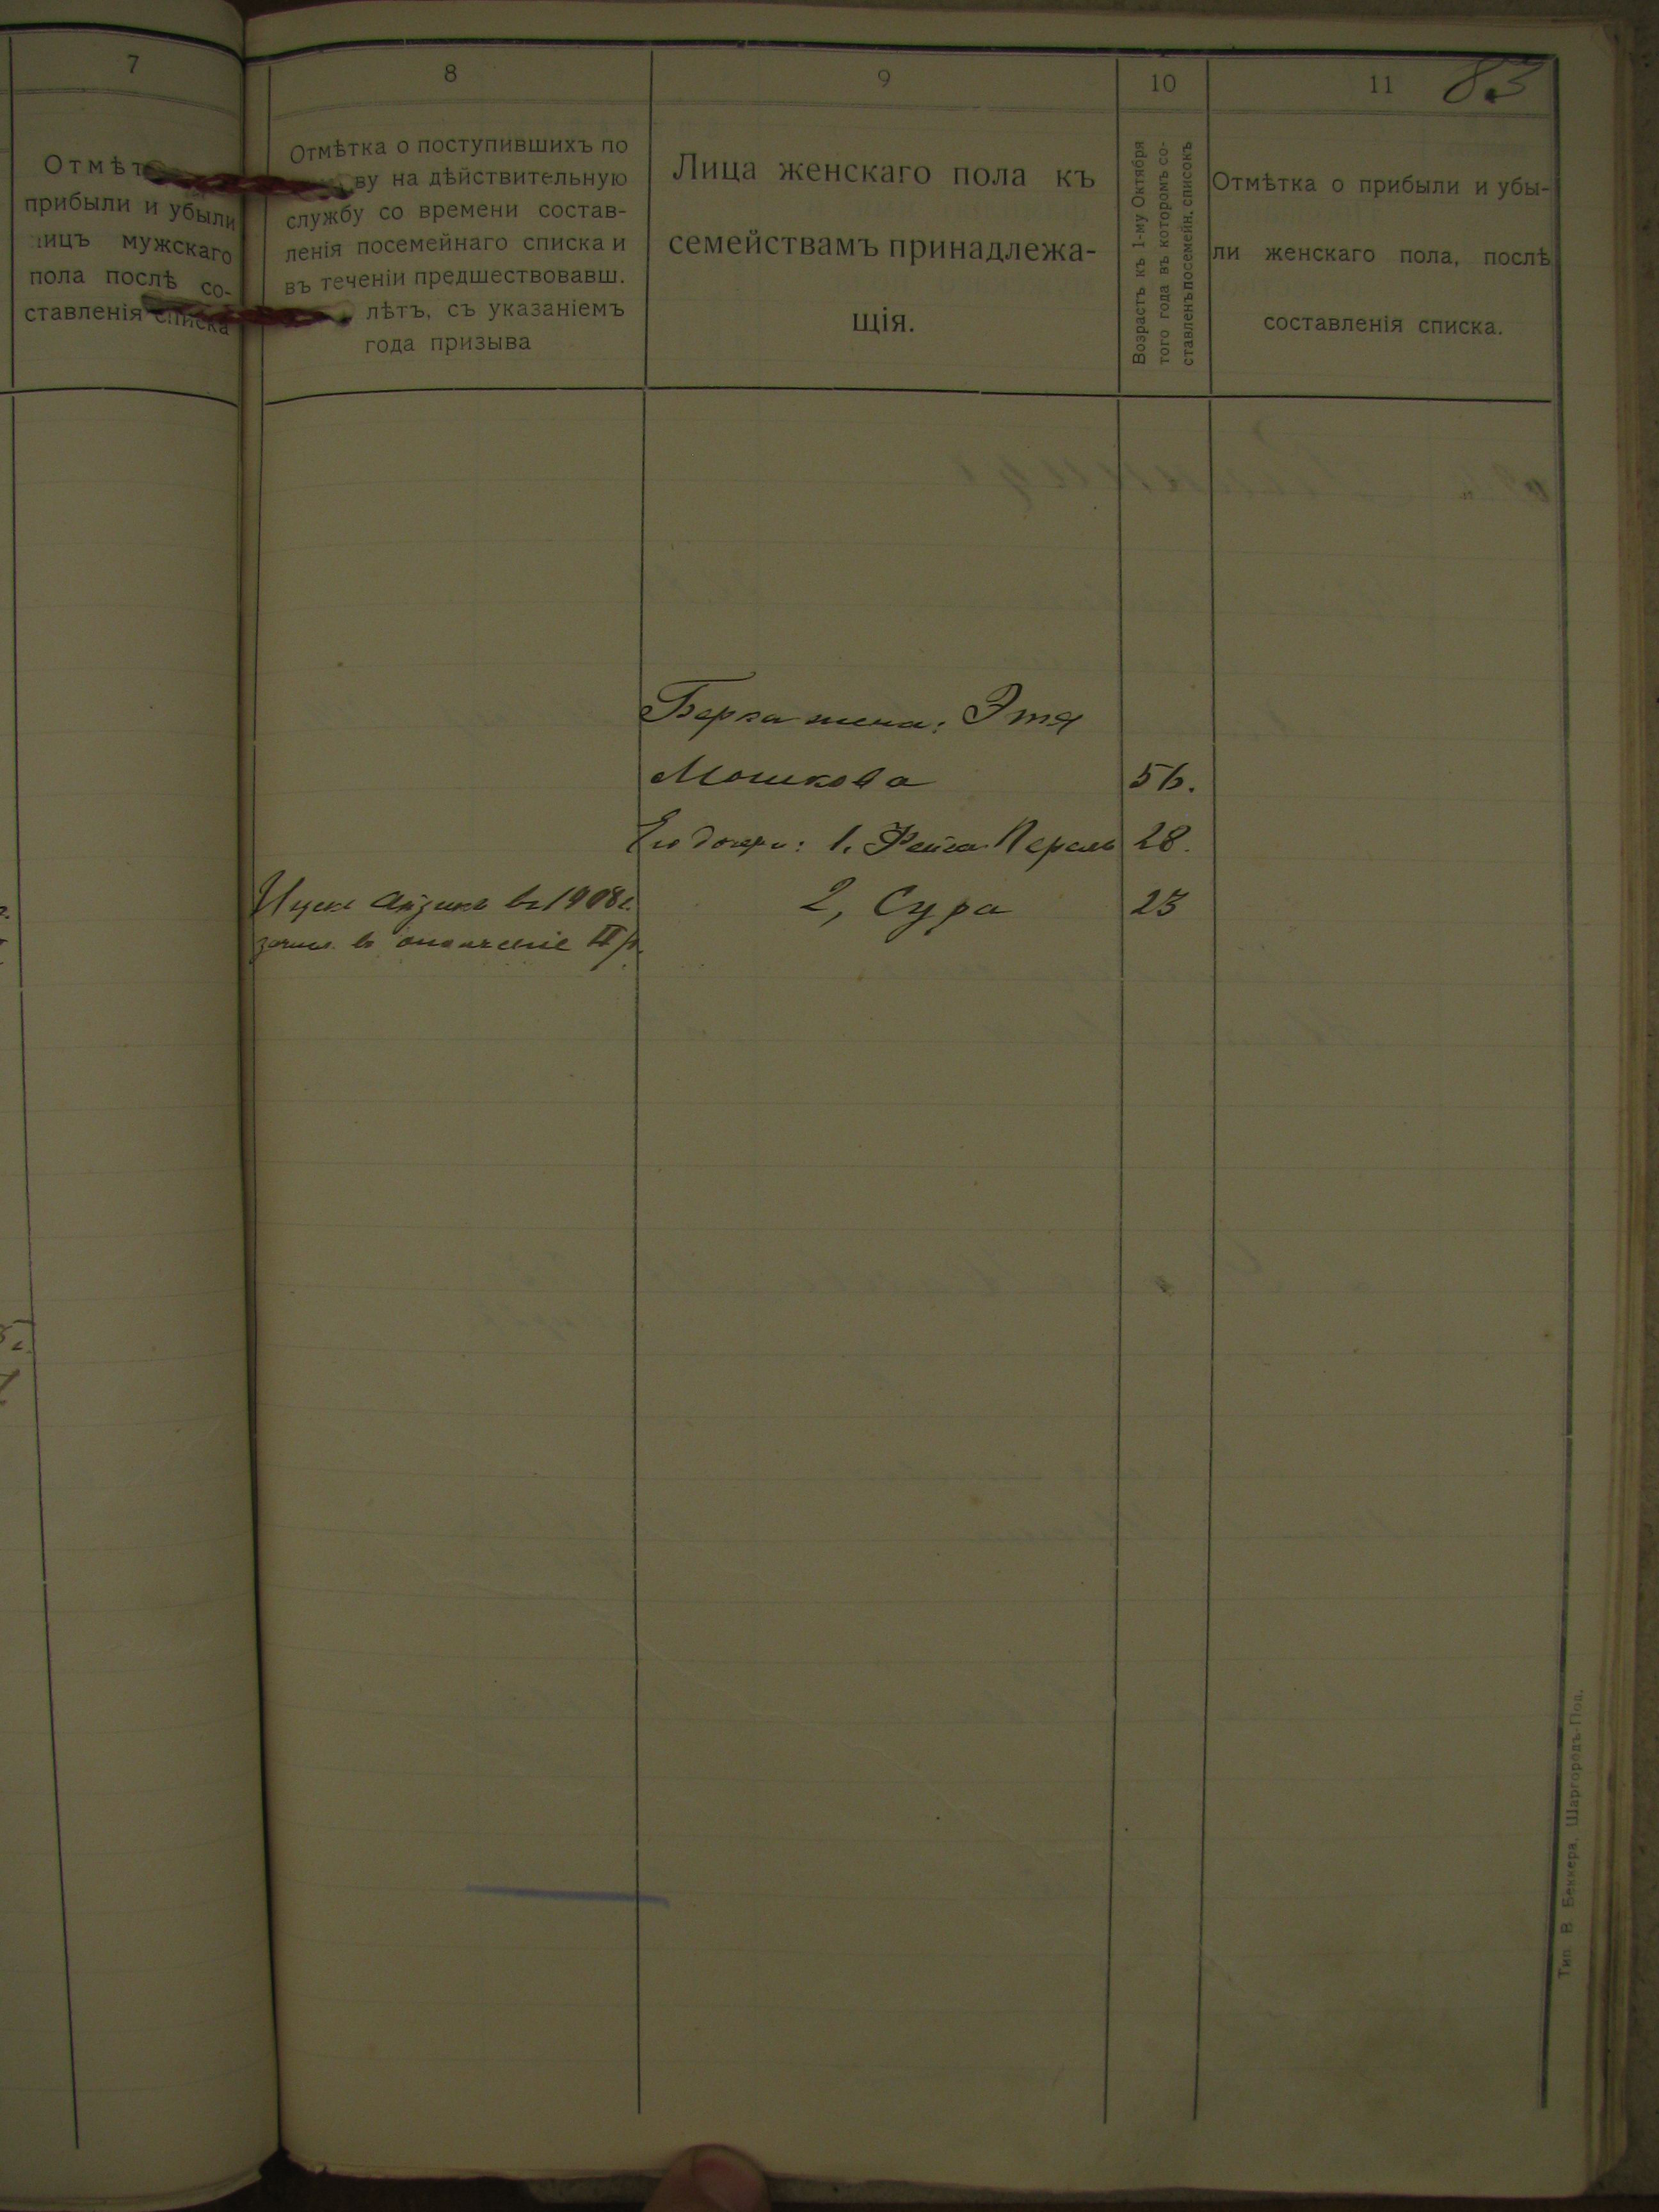 7
Отмѣт
прибыли и убыли
лицъ мужскаго
пола послѣ со-
ставленія списка
8
Отмѣтка о поступившихъ по
ву на дѣйствительную
службу со времени состав-
ленія посемейнаго списка и
въ теченіи предшествовавш.
лѣтъ, съ указаніемъ
года призыва
9
Лица женскаго пола къ
семействамъ принадлежа-
щія.
10
Возрастъ къ 1-му Октября
того года въ которомъ со-
ставленъ посемейн. списокъ
11
83
Отмѣтка о прибыли и убы-
ли женскаго пола, послѣ
составленія списка.
Берка жена: Этя
Мошкова 56.
Его дочери: 1. Фейга Перель 28.
2, Сура 23
Ицекъ Айзикъ въ 1908 г.
зачисл. въ ополченіе II р.
Тип. В. Беккера, Шаргородъ-Под.